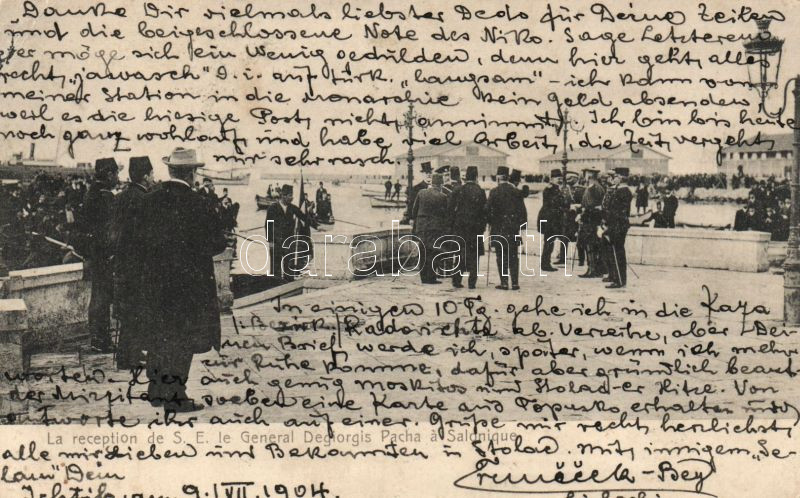 "Danke Dir vielmals liebster Dedo für Deine Zeilen
und die beigeschlossene Note des Niko. Sage Letzterem
er möge sich ein wenig gedulden, denn hier geht alles
recht "jawasch" d.i. auf türk. "langsam" - ich kann von
meiner Station in die Monarchie kein Geld absenden
weil es die hiesige Post nicht annimmt. Ich bin bis heute
noch ganz wohlauf und habe viel Arbeit, die Zeit vergeht
mir sehr rasch.
In einigen 10 Tg. gehe ich in die Kaza
/: Bezirk :/ ab. Verzeihe, aber Dei-
nen Brief werde ich, später, wenn ich mehr
zur Ruhe komme, dafür aber gründlich beant-
worten. Hier auch genug Moskitos und Stolac-er Hitze. Von
der soeben eine Karte aus erhalten und
antworte ihr auch auf einer. Grüße mir recht herzlichst
La reception de S. E. le General Degiorgis Pacha à Salonique
alle mir Lieben und Bekannten in Stolac. Mit innigem "Se-
lam" Dein
Bey
9./VII. 1904.
darabanth